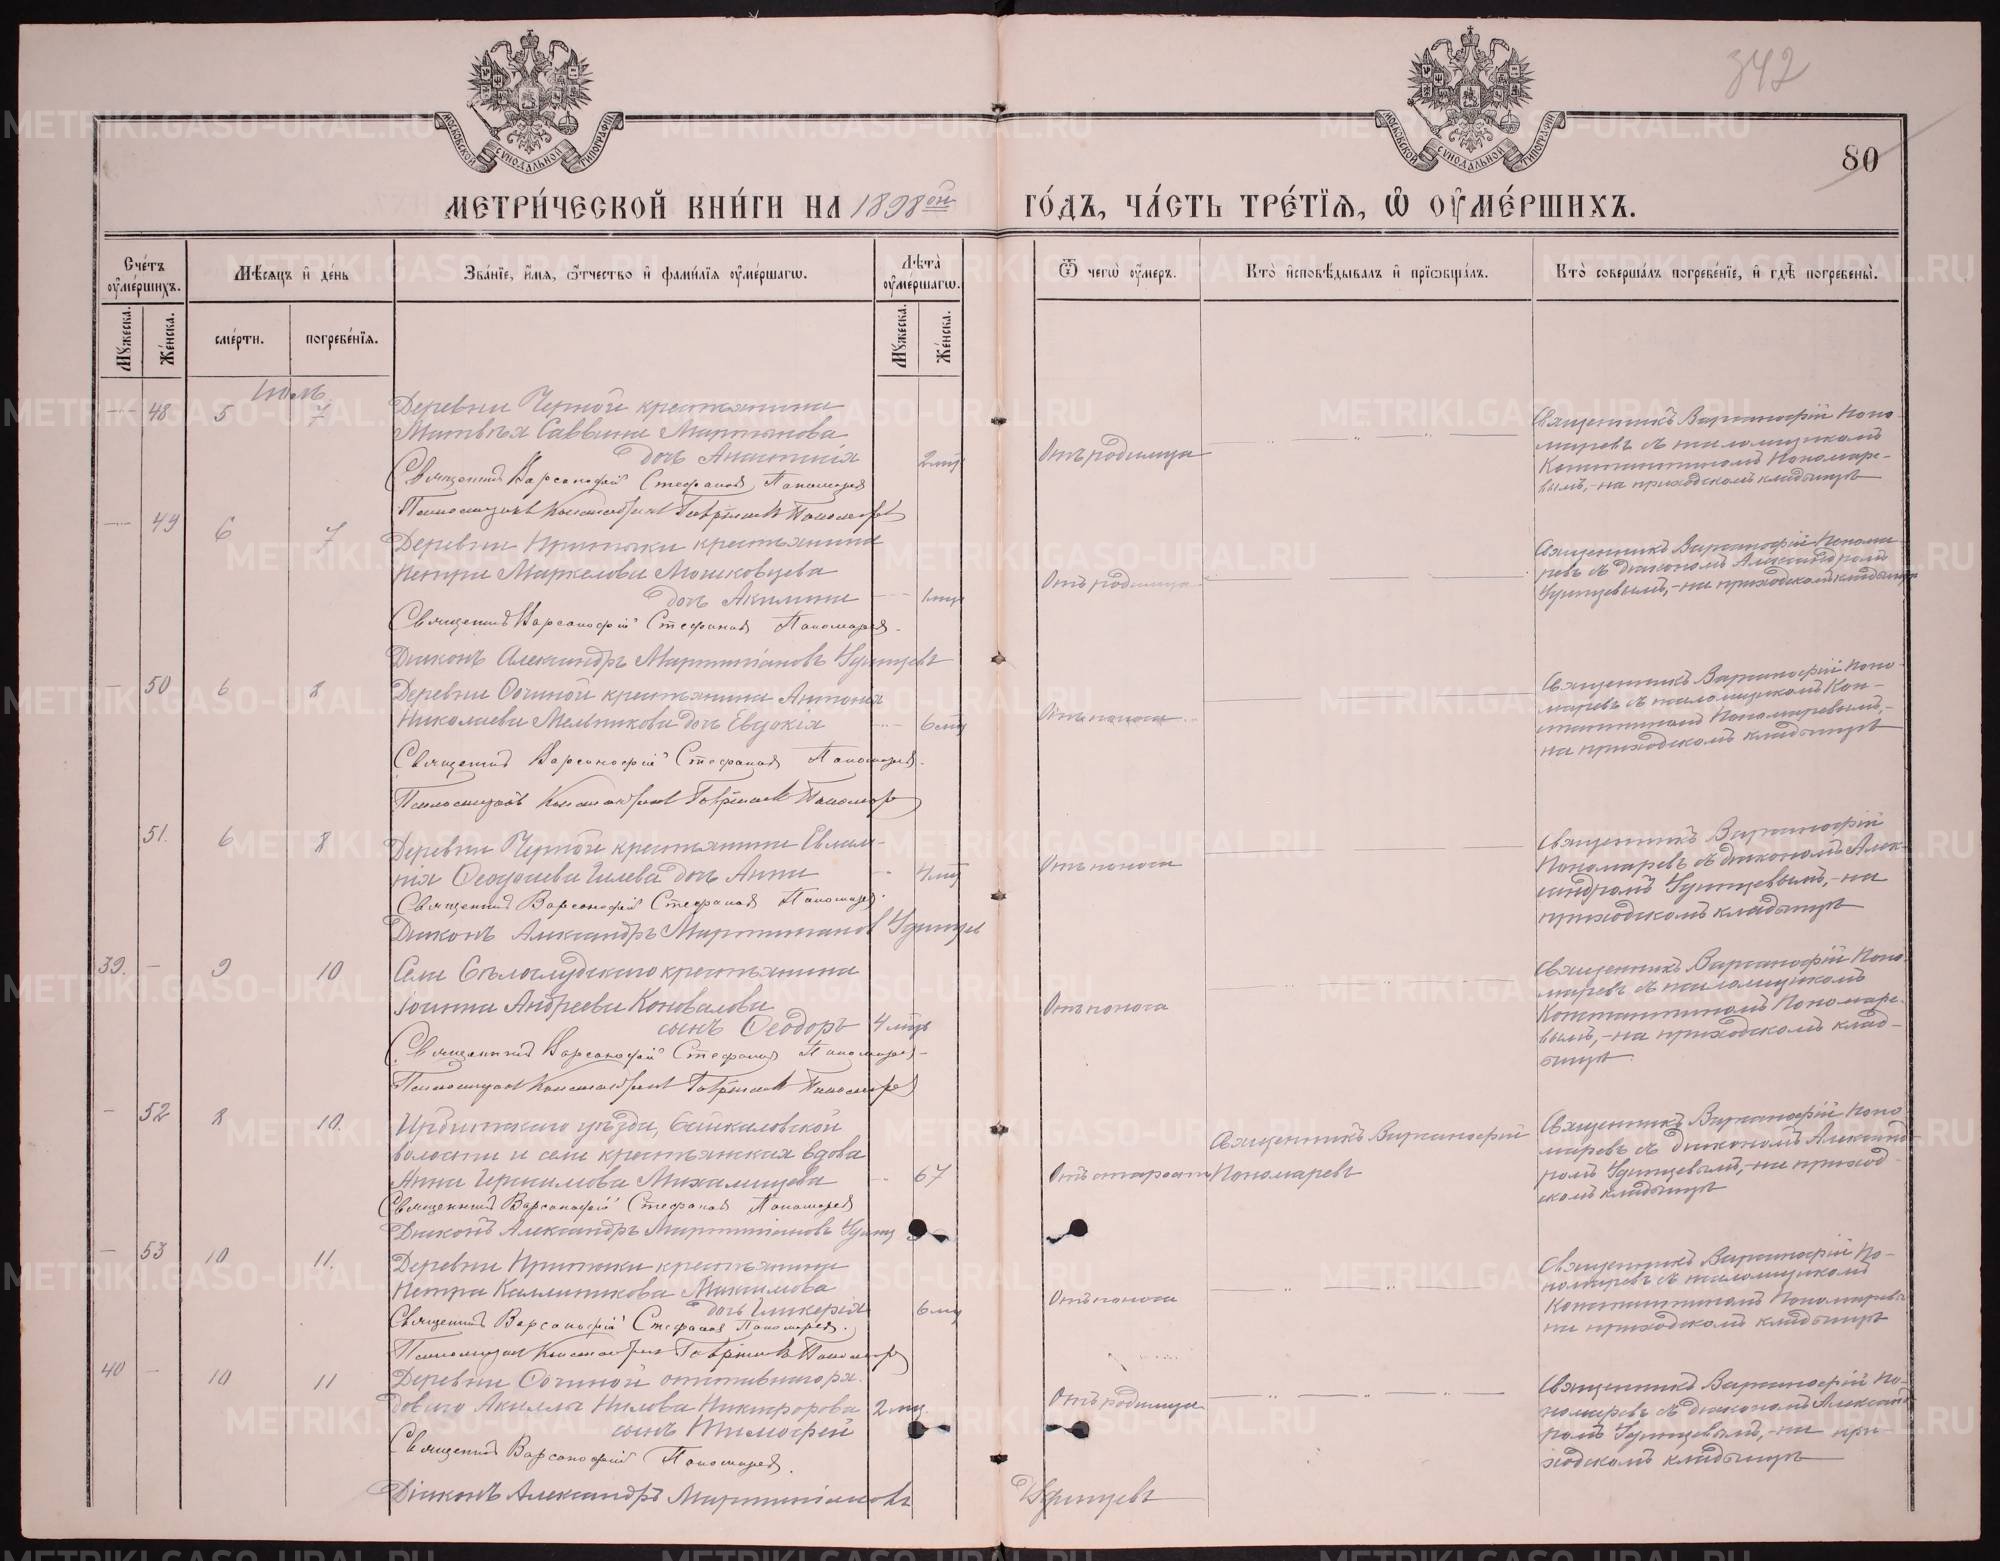 342
80
МОСКОВСКОЙ СѴНОДАЛЬНОЙ ТИПОГРАФІИ
МОСКОВСКОЙ СѴНОДАЛЬНОЙ ТИПОГРАФІИ
МЕТРИ́ЧЕСКОЙ КНИ́ГИ НА 1898ой ГО́ДЪ, ЧА́СТЬ ТРЕ́ТІЯ, Ѡ ОУМЕ́РШИХЪ.
Сче́тъ оуме́ршихъ.
Мꙋжеска.
Же́нска.
Мѣсяцъ и де́нь
сме́рти.
погребе́нїѧ.
Зва́нїе, и́мѧ, ѻ҆́тчество и фами́лїѧ оуме́ршагѡ.
Лѣта̀ оуме́ршагѡ.
Мꙋжеска.
Же́нска.
Ѿ чегѡ̀ оу́меръ.
Кто̀ исповѣ́дывалъ и прїѡбща́лъ.
Кто̀ соверша́лъ погребе́нїе, и гдѣ̀ погребены̀.
Іюль
48 5 7
Деревни Черной крестьянина
Матвѣя Саввина Мартьянова
дочь Анастасія 2 мѣс
Отъ родимца
Священникъ Варсанофій Стефановъ Пономаревъ
Псаломщикъ Константинъ Гаврииловъ Пономаревъ
Священникъ Варсанофій Поно-
маревъ съ псаломщикомъ
Константиномъ Пономаре-
вымъ, - на приходскомъ кладбищѣ
49 6 7
Деревни Притыки крестьянина
Петра Маркелова Мошковцева
дочь Акилина 1 мѣс
Отъ родимца
Священникъ Варсанофій Стефановъ Пономаревъ.
Діаконъ Александръ Мартиніановъ Удинцевъ
Священникъ Варсанофій Понома-
ревъ съ діакономъ Александромъ
Удинцевымъ, - на приходскомъ кладбищѣ
50 6 8
Деревни Осиной крестьянина Антонія
Николаева Мельникова дочь Евдокія 6 мѣс
Отъ поноса
Священникъ Варсанофій Стефановъ Пономаревъ.
Псаломщикъ Константинъ Гаврииловъ Пономаревъ
Священникъ Варсанофій Поно-
маревъ съ псаломщикомъ Кон-
стантиномъ Пономаревымъ, -
на приходскомъ кладбищѣ
51. 6 8
Деревни Черной крестьянина Евлам-
пія Ѳеодосіева Гилева дочь Анна 4 мѣс
Отъ поноса
Священникъ Варсанофій Стефановъ Пономаревъ.
Діаконъ Александръ Мартиніановъ Удинцевъ
Священникъ Варсанофій
Пономаревъ съ діакономъ Алек-
сандромъ Удинцевымъ, - на
приходскомъ кладбищѣ
39. 9 10
Села Бѣлослудскаго крестьянина
Іоанна Андреева Коновалова
сынъ Ѳеодоръ 4 мѣс
Отъ поноса
Священникъ Варсанофій Стефановъ Пономаревъ
Псаломщикъ Константинъ Гаврииловъ Пономаревъ
Священникъ Варсанофій Поно-
маревъ съ псаломщикомъ
Константиномъ Пономаре-
вымъ, - на приходскомъ клад-
бищѣ.
52 8 10.
Ирбитскаго уѣзда, Байкаловской
волости и села крестьянская вдова
Анна Герасимова Михалицева 67
Отъ старости
Священникъ Варсанофій
Пономаревъ
Священникъ Варсанофій Стефановъ Пономаревъ
Діаконъ Александръ Мартиніановъ Удинц
Священникъ Варсанофій Поно-
маревъ съ діакономъ Александ-
ромъ Удинцевымъ, - на приход-
скомъ кладбищѣ
53 10 11.
Деревни Притыки крестьянина
Петра Каллиникова Максимова
дочь Гликерія 6 мѣс
Отъ поноса
Священникъ Варсанофій Стефановъ Пономаревъ.
Псаломщикъ Константинъ Гаврииловъ Пономаревъ
Священникъ Варсанофій По-
номаревъ съ псаломщикомъ
Константиномъ Пономаревымъ
на приходскомъ кладбищѣ
40 10 11
Деревни Осиной отставнаго ря-
доваго Акиллы Нилова Никифорова 2 мѣс
сынъ Тимоѳей
Отъ родимца
Священникъ Варсанофій Пономаревъ.
Діаконъ Александръ Мартиніановъ Удинцевъ
Священникъ Варсанофій По-
номаревъ съ діакономъ Александ-
ромъ Удинцевымъ, - на при-
ходскомъ кладбищѣ
METRIKI.GASO-URAL.RU